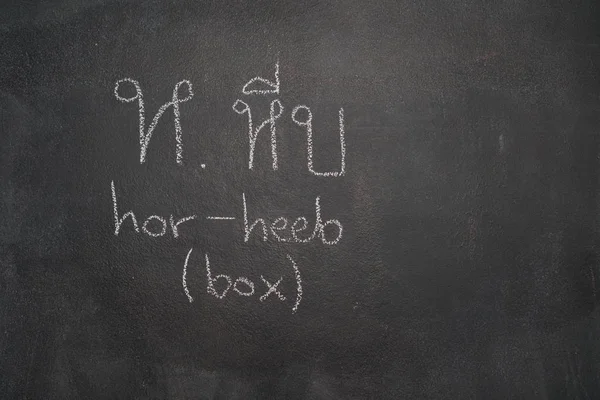 ห. หีบ
hor-heeb
(box)